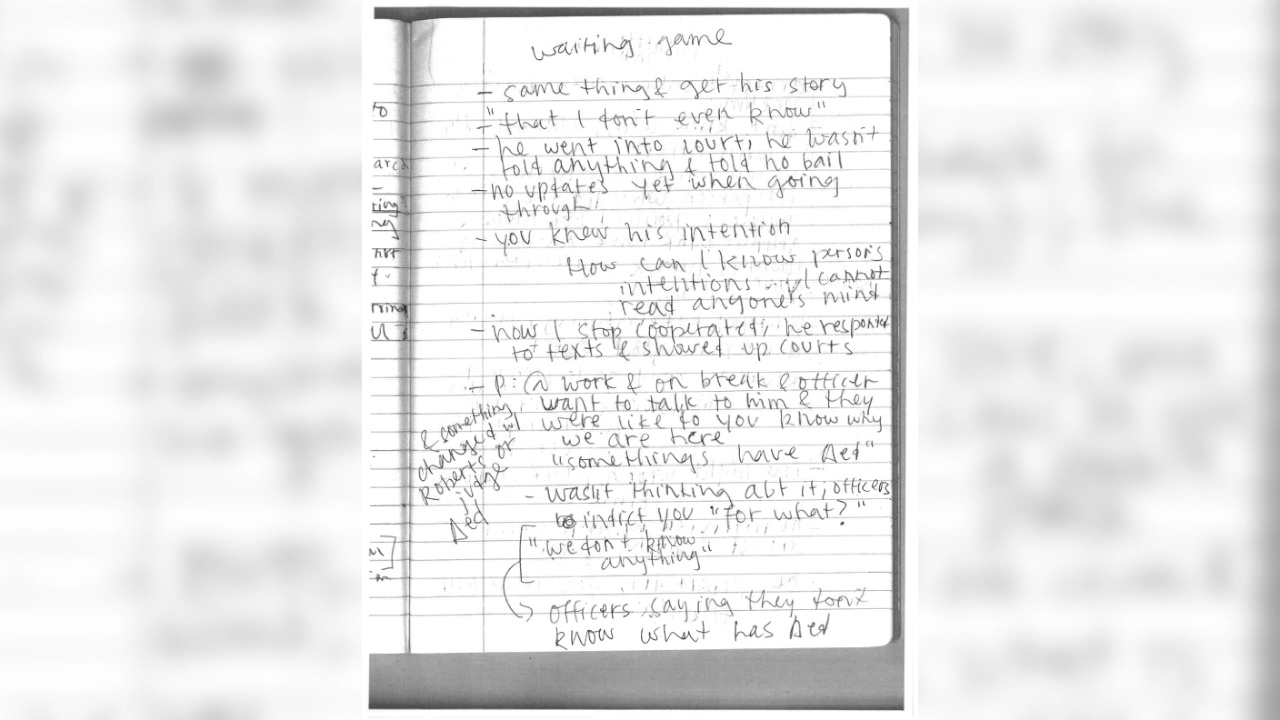 waiting game
- same thing & get his story
- "that I don't even know"
- he went into court, he wasn't
told anything & told no bail
- no updates yet when going
through
- you knew his intention
How can I know person's
intentions ... I cannot
read anyone's mind
- now I stop cooperated, he responded
to texts & showed up courts
- P: @ work & on break & officer
want to talk to him & they
were like do you know why
we are here
"somethings have Δed"
& something
changed w/
Roberts or
judge
Δed
- wasn't thinking abt it, officers
indict you "for what?"
"we don't know
anything"
officers saying they don't
know what has Δed